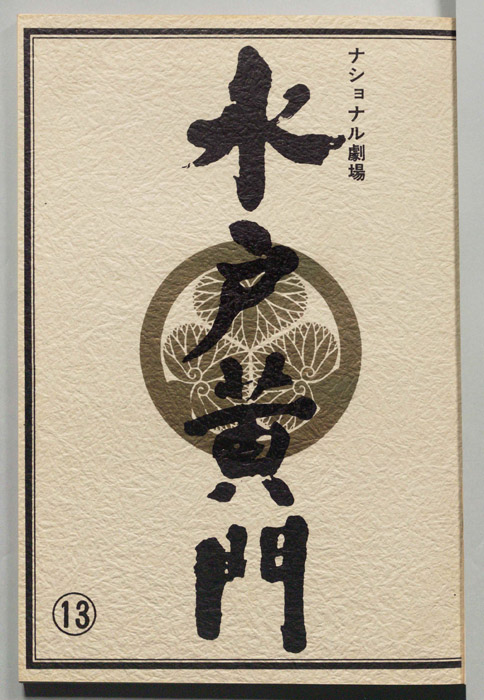 ナショナル劇場
水戸黄門
13